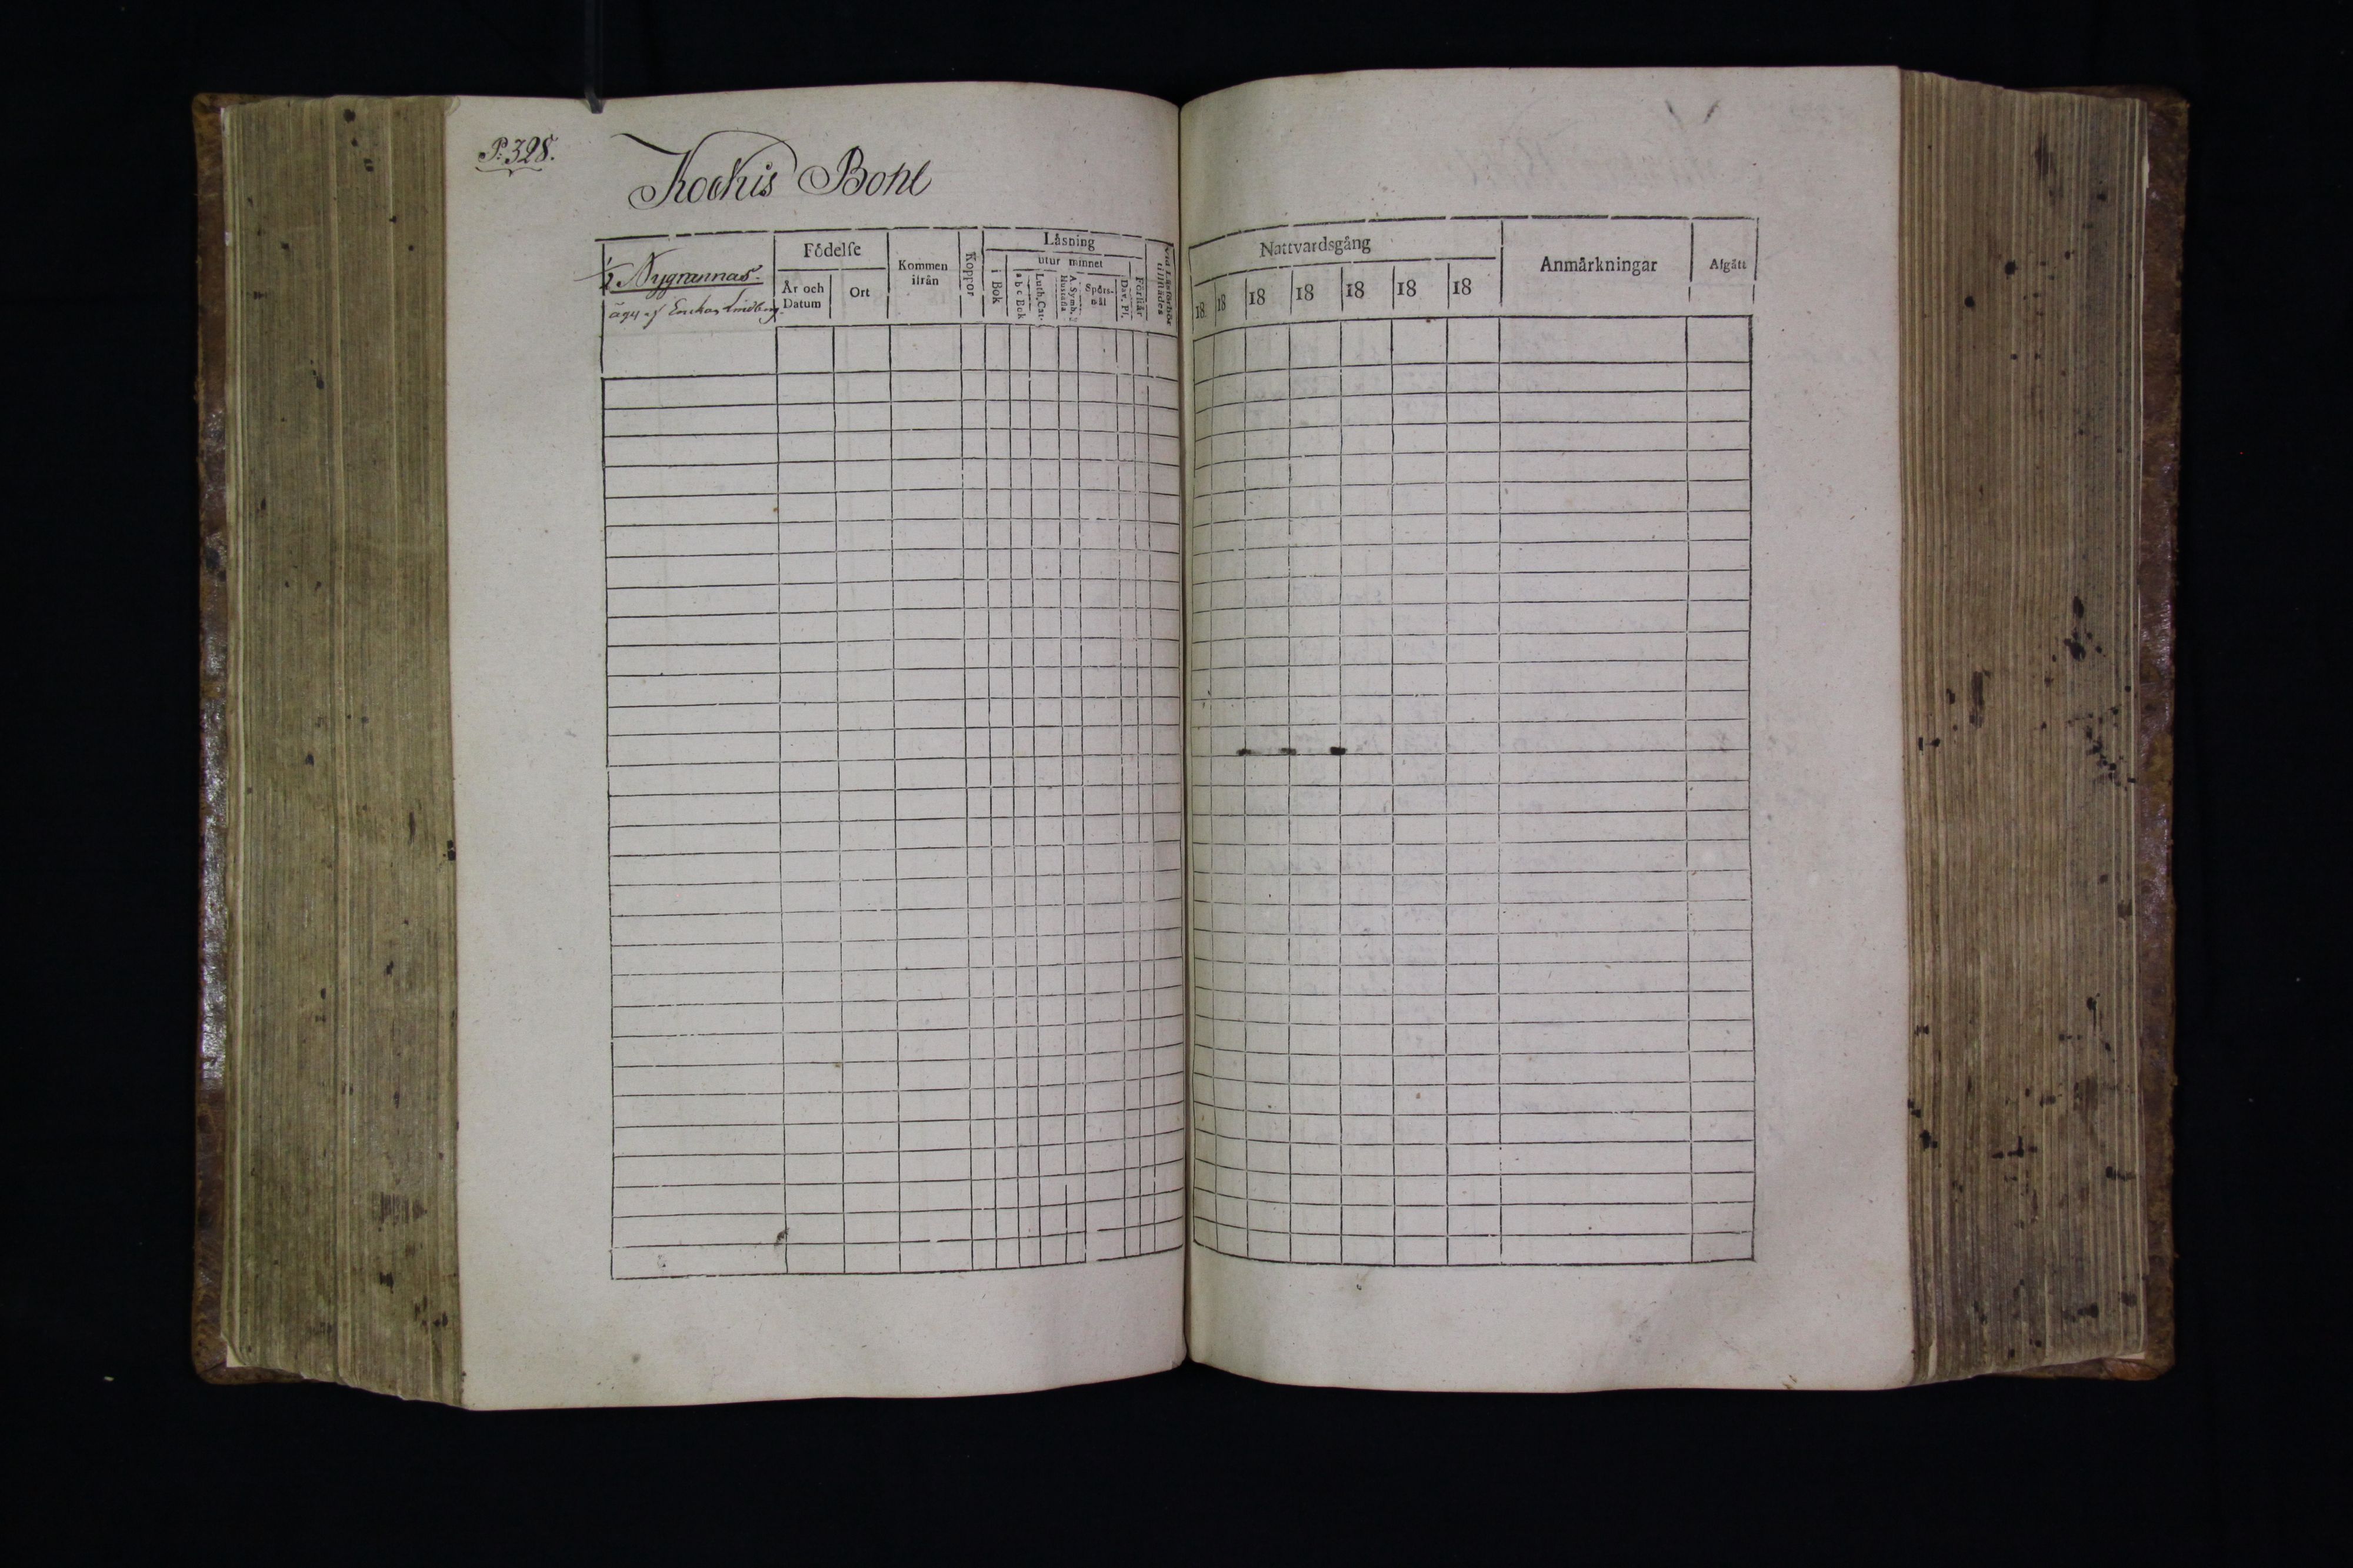 P. 328.
Kockis Bohl
1/2 Nygrannas.
äges af Enckan Lindberg.
Födelse
År och Datum
Ort
Kommen ifrån
Koppor
Läsning
i Bok
utur minnet
a b c Bok
Luth. Cat.
A. Symb.
Hustafla
Spörs-
mål
Dav. Ps.
Förstår
Vid Läsförhör
tillstädes
Nattvardsgång
18 18 18 18 18 18 18
Anmärkningar
Afgått